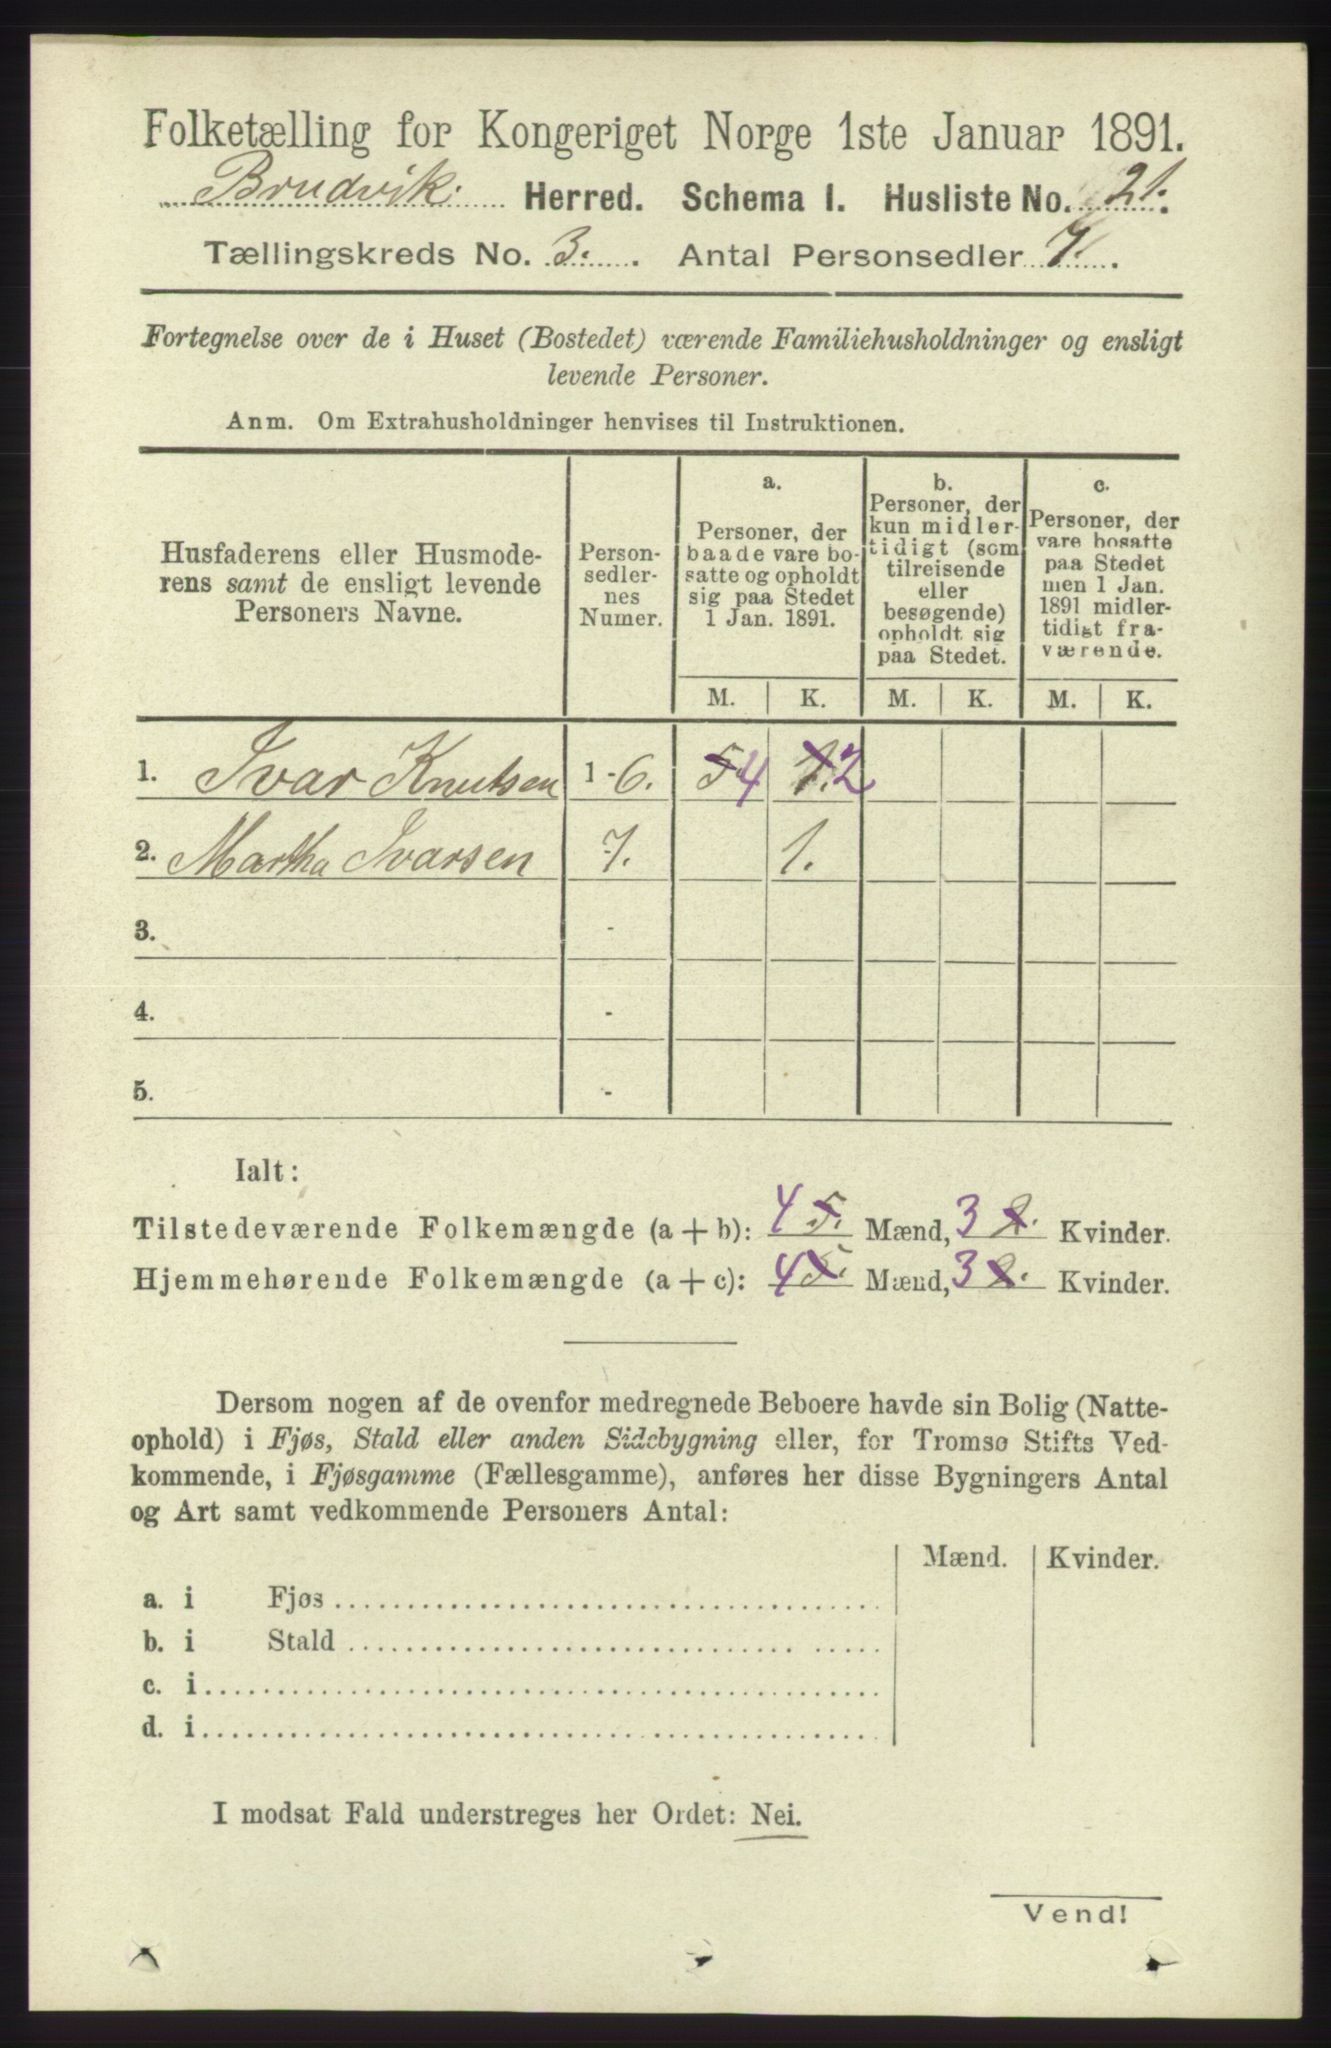 Folketælling for Kongeriget Norge 1ste Januar 1891.
Brudvik. Herred. Schema I. Husliste No. 21.
Tællingskreds No. 3. Antal Personsedler 7.
Fortegnelse over de i Huset (Bostedet) værende Familiehusholdninger og ensligt
levende Personer.
Anm. Om Extrahusholdninger henvises til Instruktionen.
Husfaderens eller Husmode-
rens samt de ensligt levende
Personers Navne.
Person-
sedler-
nes
Numer.
a.
Personer, der
baade vare bo-
satte og opholdt
sig paa Stedet
1 Jan. 1891.
b.
Personer, der
kun midler-
tidigt (som
tilreisende
eller
besøgende)
opholdt sig
paa Stedet.
c.
Personer, der
vare bosatte
paa Stedet
men 1 Jan.
1891 midler-
tidigt fra-
værende.
M. K. M. K. M. K.
1. Ivar Knutsen 1 - 6. 5. 4 1. 2
2. Martha Ivarsen 7. 1.
3. -
4. -
5. -
Ialt:
Tilstedeværende Folkemængde (a + b): 4 5. Mænd, 3 2. Kvinder.
Hjemmehørende Folkemængde (a + c): 4 5. Mænd, 3 2. Kvinder.
Dersom nogen af de ovenfor medregnede Beboere havde sin Bolig (Natte-
ophold) i Fjøs, Stald eller anden Sidebygning eller, for Tromsø Stifts Ved-
kommende, i Fjøsgamme (Fællesgamme), anføres her disse Bygningers Antal
og Art samt vedkommende Personers Antal:
Mænd. Kvinder.
a. i Fjøs
b. i Stald
c. i
d. i
I modsat Fald understreges her Ordet: Nei.
Vend!